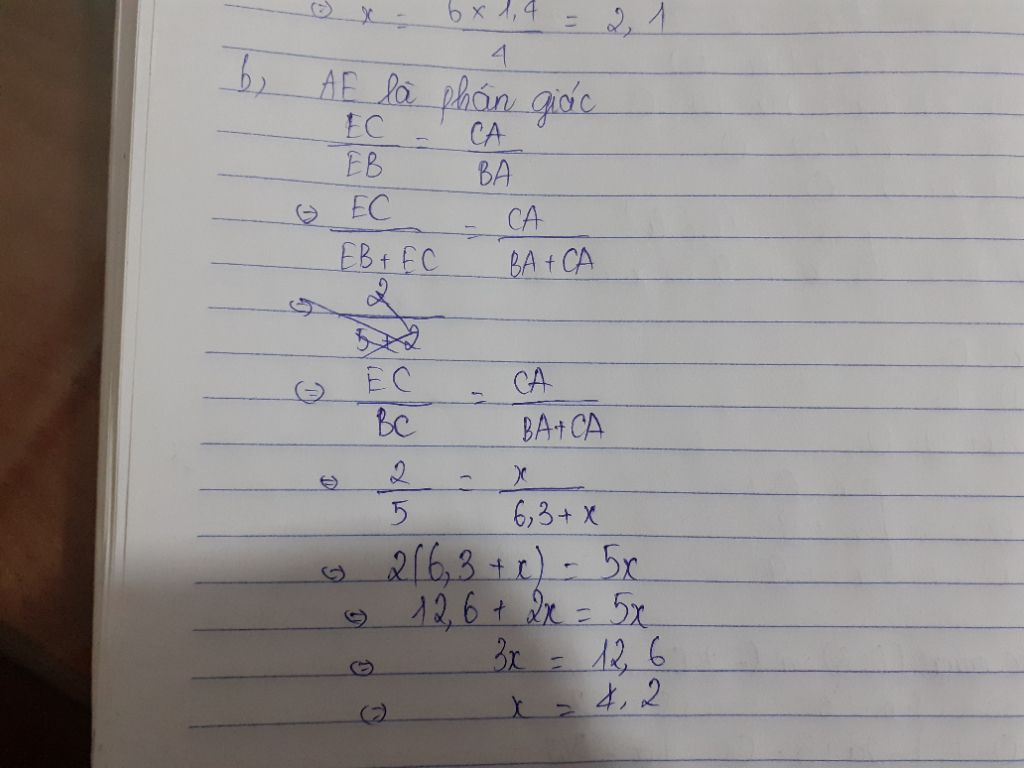 ⇔ x = 6 x 1,4 / 4 = 2,1
b, AE là phân giác
EC / EB = CA / BA
⇔ EC / EB + EC = CA / BA + CA
⇔ 2 / 5 + 2
⇔ EC / BC = CA / BA + CA
⇔ 2 / 5 = x / 6,3 + x
⇔ 2(6,3 + x) = 5x
⇔ 12,6 + 2x = 5x
⇔ 3x = 12,6
⇔ x = 4,2